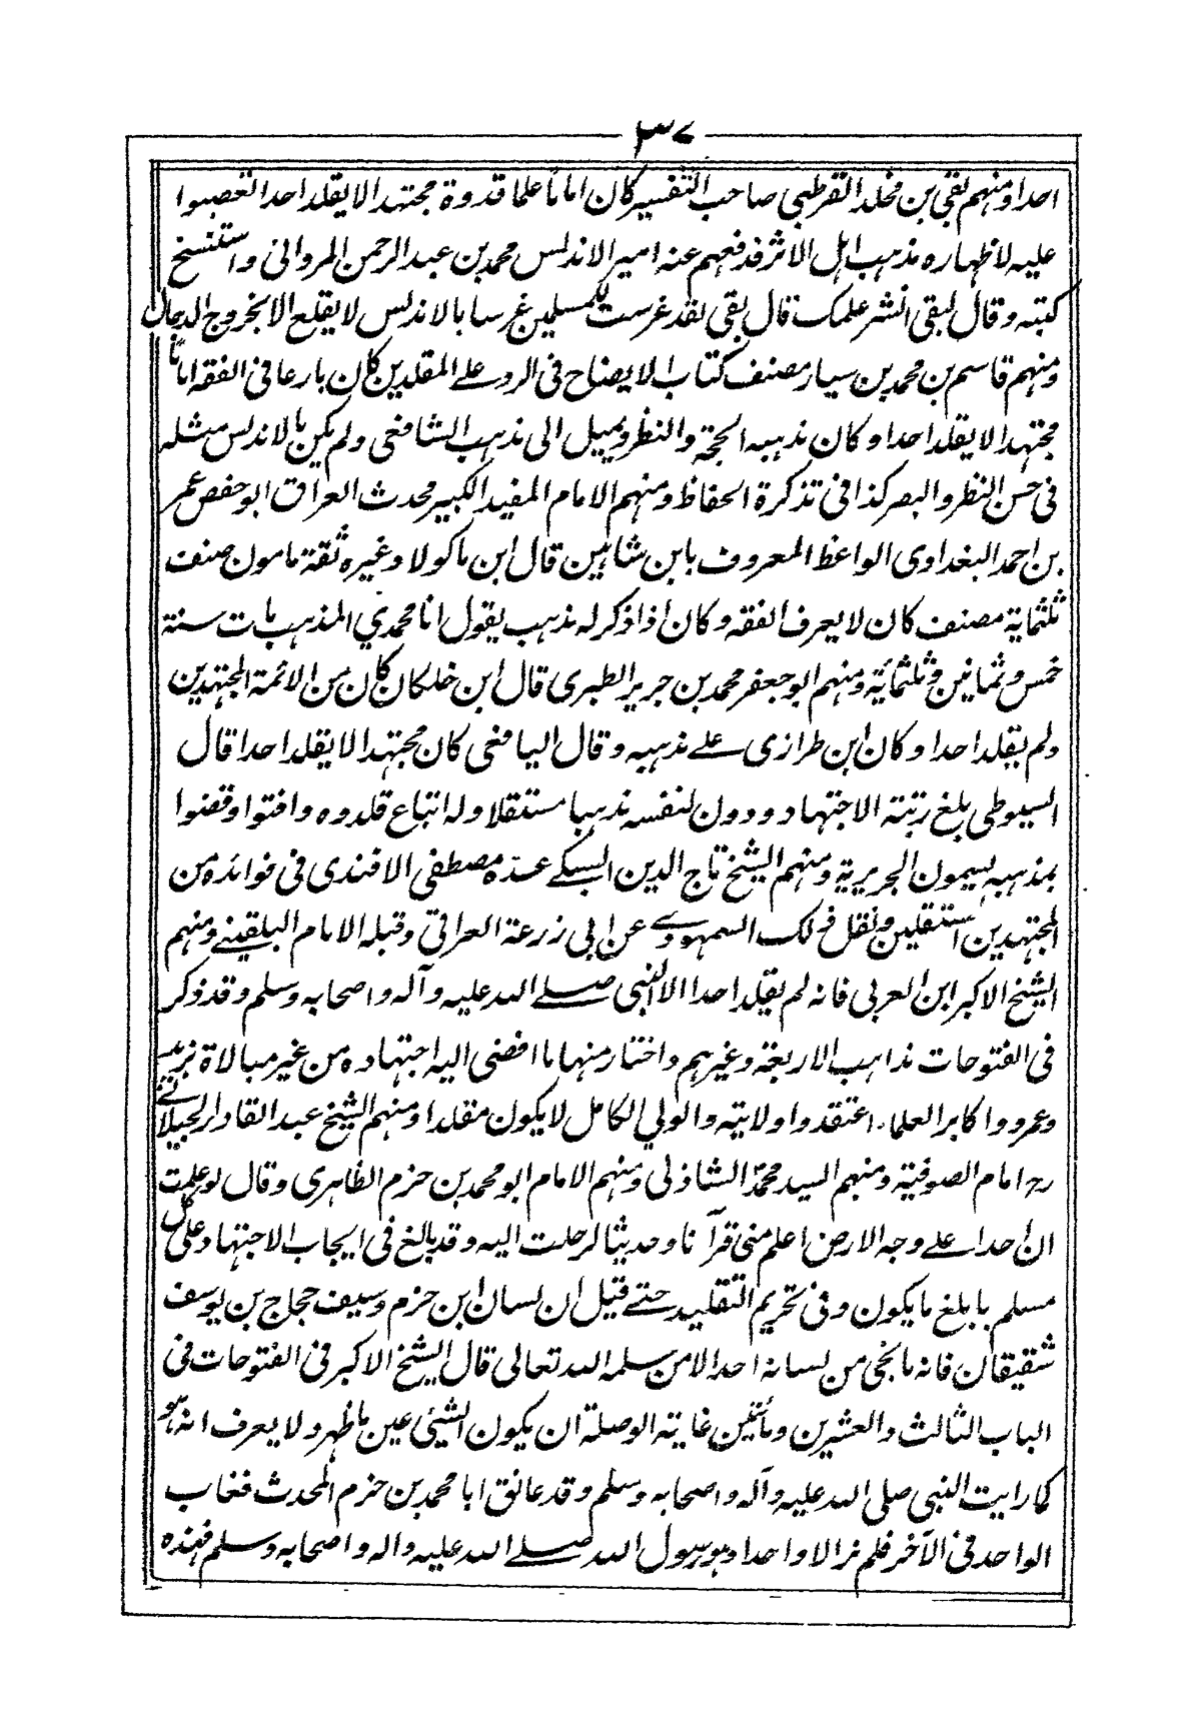 ٣٧
احدا ومنهم بقي بن مخلد القرطبي صاحب التفسير كان اماما علما قدوة مجتهدا لا يقلد احدا تعصبوا
عليه لاظهاره مذهب اهل الاثر فدفعهم عنه امير الاندلس محمد بن عبد الرحمن المرواني واستنسخ
كتبه وقال لبقي انشر علمك قال بقي لقد غرست للمسلمين غرسا بالاندلس لا يقلع الا بخروج الدجال
ومنهم قاسم بن محمد بن سيار مصنف كتاب الايضاح في الرد على المقلدين كان بارعا في الفقه اماما
مجتهدا لا يقلد احدا وكان مذهبه الحجة والنظر ويميل الى مذهب الشافعي ولم يكن بالاندلس مثله
في حسن النظر والبصر كذا في تذكرة الحفاظ ومنهم الامام المفيد الكبير محدث العراق ابو حفص عمر
بن احمد البغدادي الواعظ المعروف بابن شاهين قال ابن ماكولا وغيره ثقة مامون صنف
ثلثماية مصنف كان لا يعرف الفقه وكان اذا ذكر له مذهب يقول انا محمدي المذهب مات سنة
خمس وثمانين وثلثمائة ومنهم ابو جعفر محمد بن جرير الطبري قال ابن خلكان كان من الائمة المجتهدين
ولم يقلد احدا وكان ابن طرازى على مذهبه وقال اليافعي كان مجتهدا لا يقلد احدا قال
السيوطي بلغ رتبة الاجتهاد ودون لنفسه مذهبا مستقلا وله اتباع قلدوه وافتوا وقضوا
بمذهبه يسمون الجريرية ومنهم الشيخ تاج الدين السبكي عده مصطفى الافندى في فوائده من
المجتهدين استقلين ونقل ذلك السمهودي عن ابي زرعة العراقي وقبله الامام البلقيني ومنهم
الشيخ الاكبر ابن العربي فانه لم يقلد احدا الا النبي صلى الله عليه وآله واصحابه وسلم وقد ذكر
في الفتوحات مذاهب الاربعة وغيرهم واختار منها ما افضى اليه اجتهاده من غير مبالاة بزيد
وعمرو واكابر العلماء اعتقدوا ولايته والولي الكامل لا يكون مقلدا ومنهم الشيخ عبد القادر الجيلاني
رح امام الصوفية ومنهم السيد محمد الشاذلي ومنهم الامام ابو محمد بن حزم الظاهري وقال لو علمت
ان احدا على وجه الارض اعلم مني قرآنا وحديثا لرحلت اليه وقد بالغ في ايجاب الاجتهاد على كل
مسلم بابلغ ما يكون وفي تحريم التقليد حتى قيل ان لسان ابن حزم وسيف حجاج بن يوسف
شقيقان فانه ما نجى من لسانه احد الا من سلمه الله تعالى قال الشيخ الاكبر في الفتوحات في
الباب الثالث والعشرين ومأتين غاية الوصلة ان يكون الشئي عين ما ظهر ولا يعرف انه هو
كما رايت النبي صلى الله عليه وآله واصحابه وسلم وقد عانق ابا محمد بن حزم المحدث فغاب
الواحد في الآخر فلم نر الا واحدا وهو رسول الله صلى الله عليه واله واصحابه وسلم فهذه